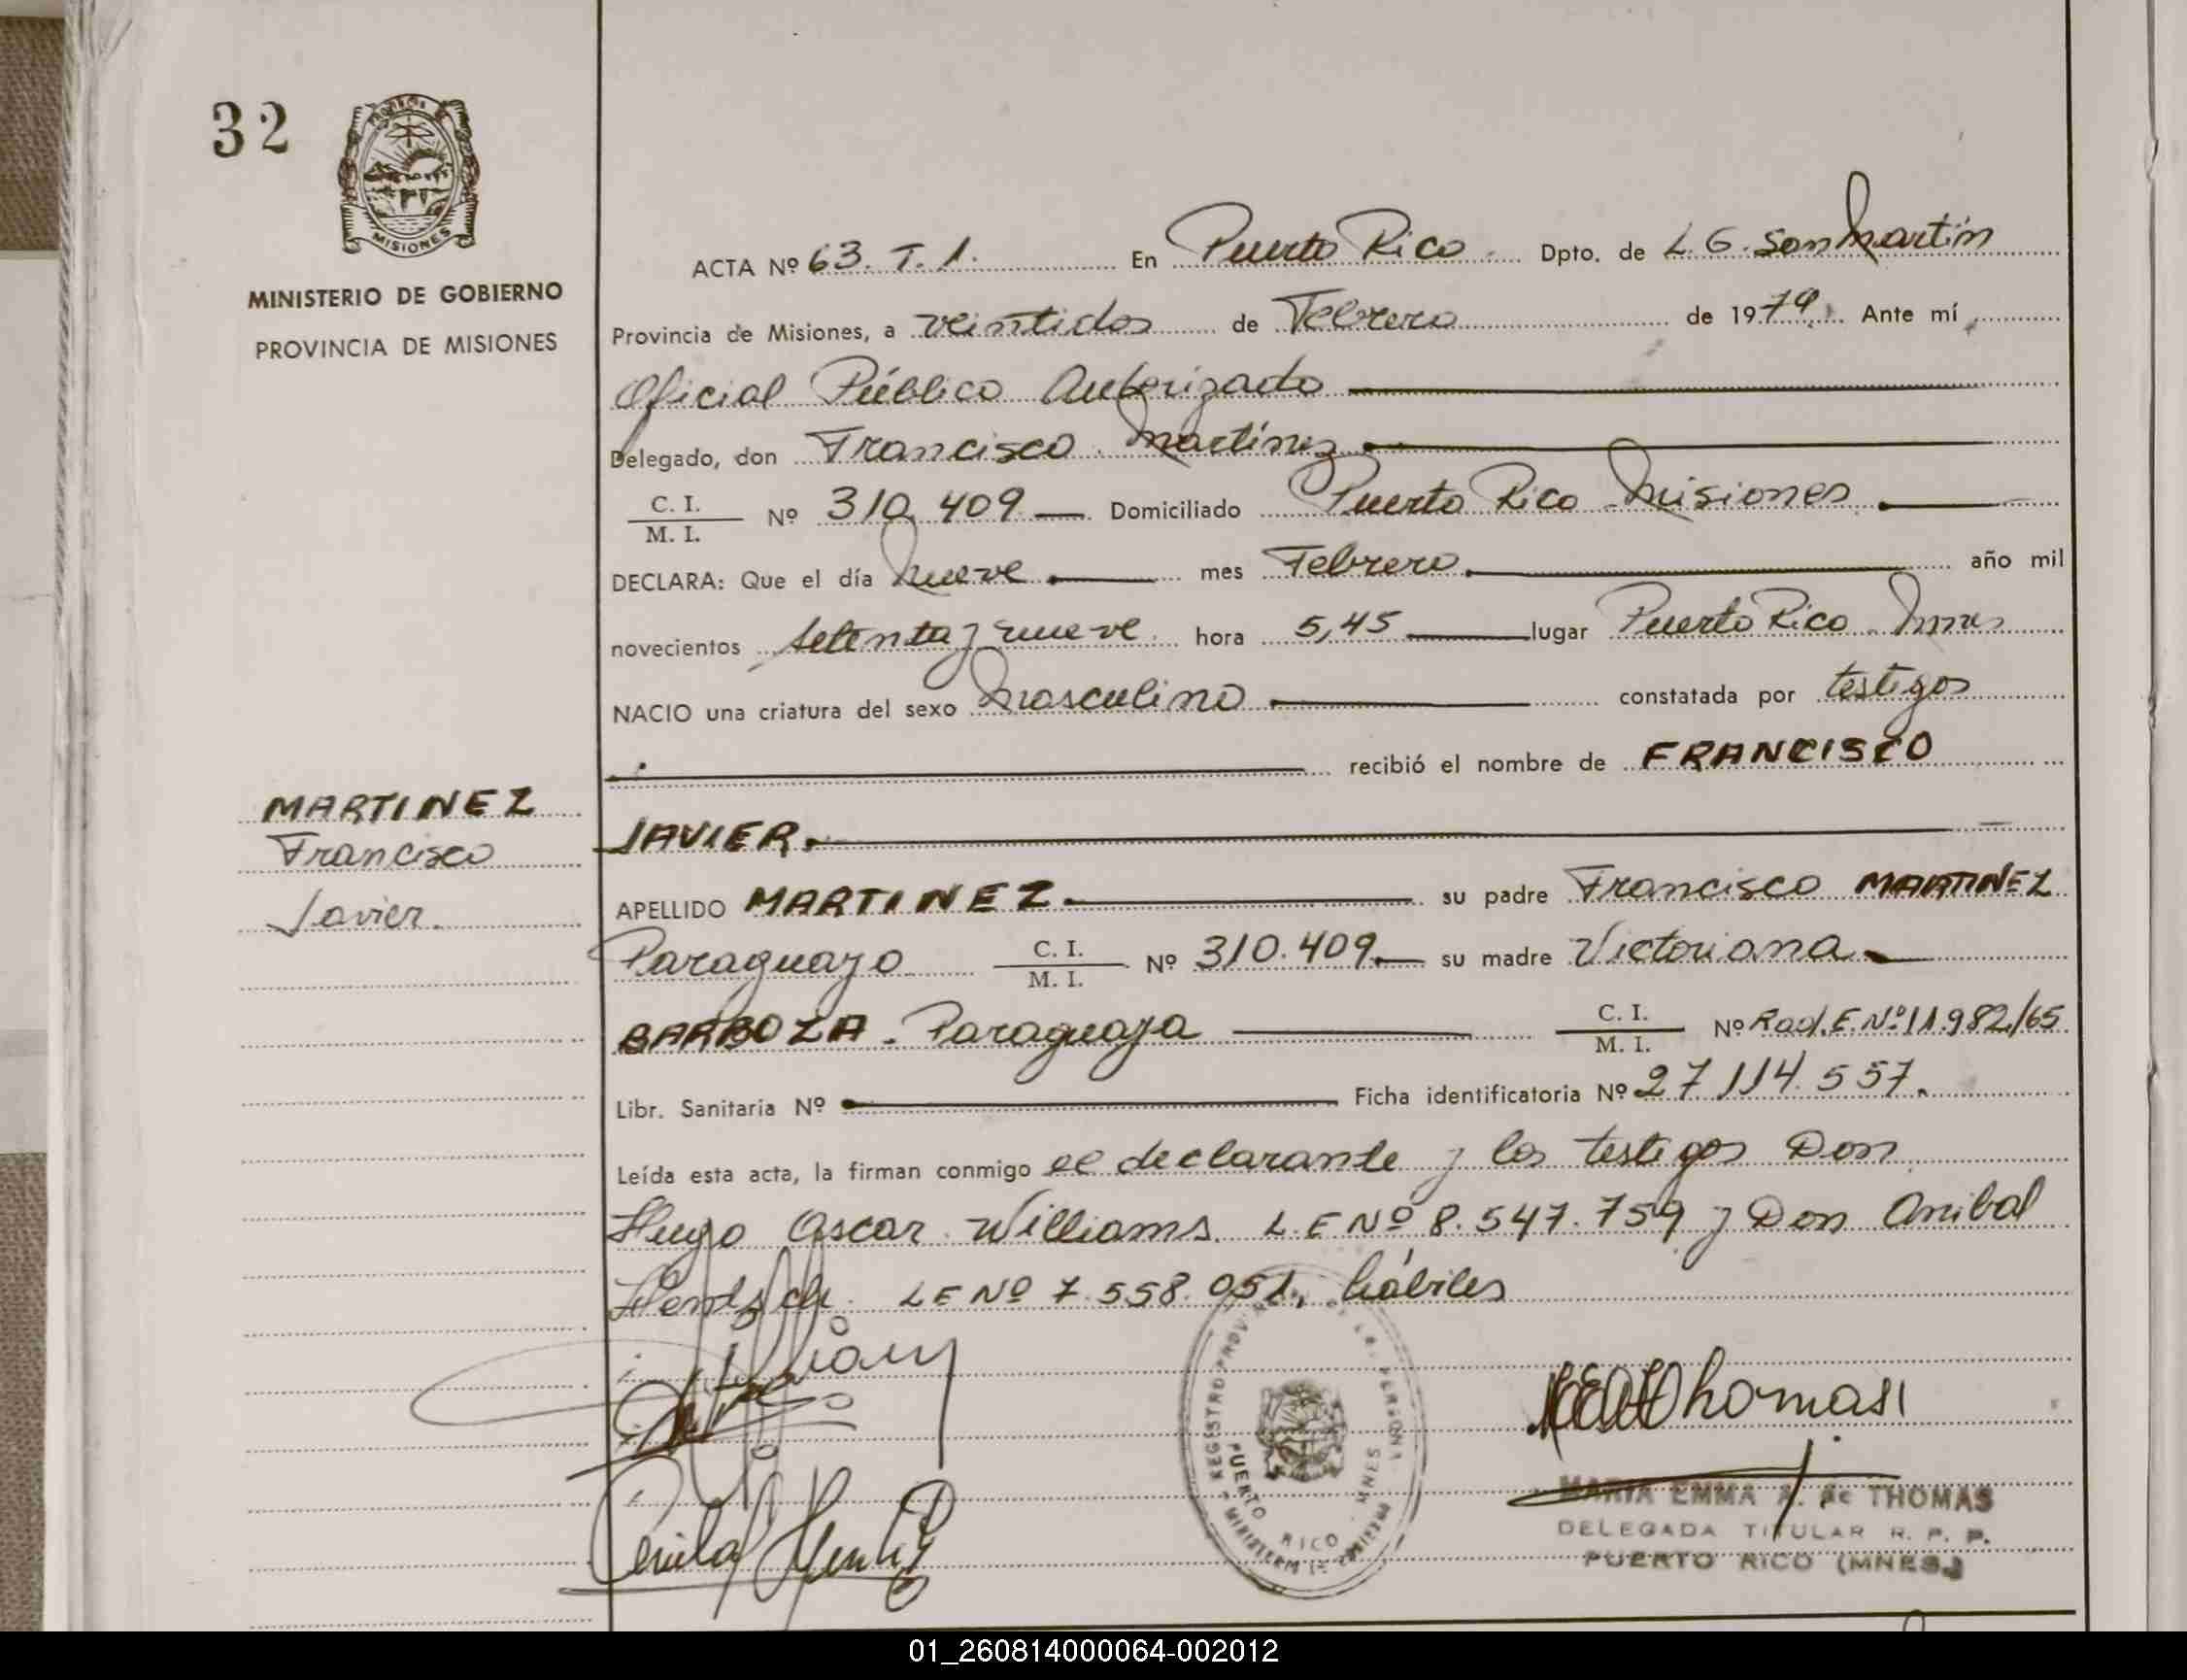 32
MISIONES
MINISTERIO DE GOBIERNO
PROVINCIA DE MISIONES
ACTA Nº 63. T. 1. En Puerto Rico. Dpto. de L. G. San Martín
Provincia de Misiones, a veintidos de Febrero de 1979. Ante mí
Oficial Público Autorizado
Delegado, don Francisco Martínez
C. I. / M. I. Nº 310.409 Domiciliado Puerto Rico Misiones.
DECLARA: Que el día nueve mes Febrero. año mil
novecientos setenta y nueve. hora 5,45 lugar Puerto Rico Mnes
NACIO una criatura del sexo Masculino constatada por testigos
recibió el nombre de FRANCISCO
JAVIER.
MARTINEZ
Francisco
Javier.
APELLIDO MARTINEZ su padre Francisco MARTINEZ
Paraguayo C. I. / M. I. Nº 310.409. su madre Victoriana
BARBOZA. Paraguaya C. I. / M. I. Nº Rad. E. Nº 11.982/65
Libr. Sanitaria Nº Ficha identificatoria Nº 27 114.557.
Leída esta acta, la firman conmigo el declarante y los testigos Don
Hugo Oscar Williams. L.E Nº 8.547.759 y Don Anibal
LE Nº 7.558.051, hábiles
REGISTRO PERSONAS
PUERTO RICO MNES
Thomas
MARIA EMMA A. de THOMAS
DELEGADA TITULAR R. P. P.
PUERTO RICO (MNES.)
01_260814000064-002012